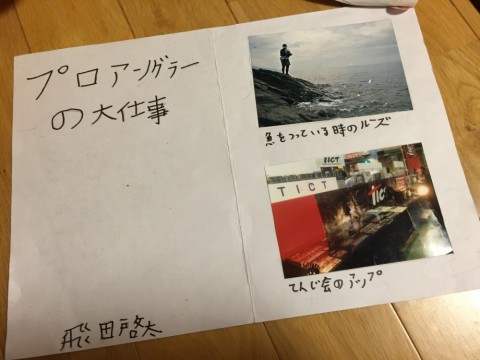 プロアングラー
の大仕事
飛田啓太
魚をつっている時のルーズ
TICT
TICT
TICT
てんじ会のアップ